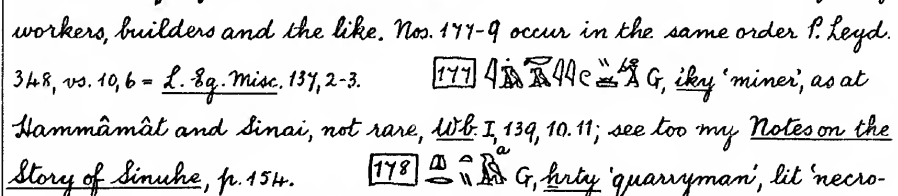 workers, builders and the like. Nos. 177-9 occur in the same order P. Leyd.
348, vs. 10,6 = L. Eg. Misc. 137, 2-3. 177 G, iky 'miner', as at
Hammâmât and Sinai, not rare, Wb. I, 139, 10. 11; see too my Notes on the
Story of Sinuhe, p. 154. 178 a G, hrty 'quarryman', lit 'necro-